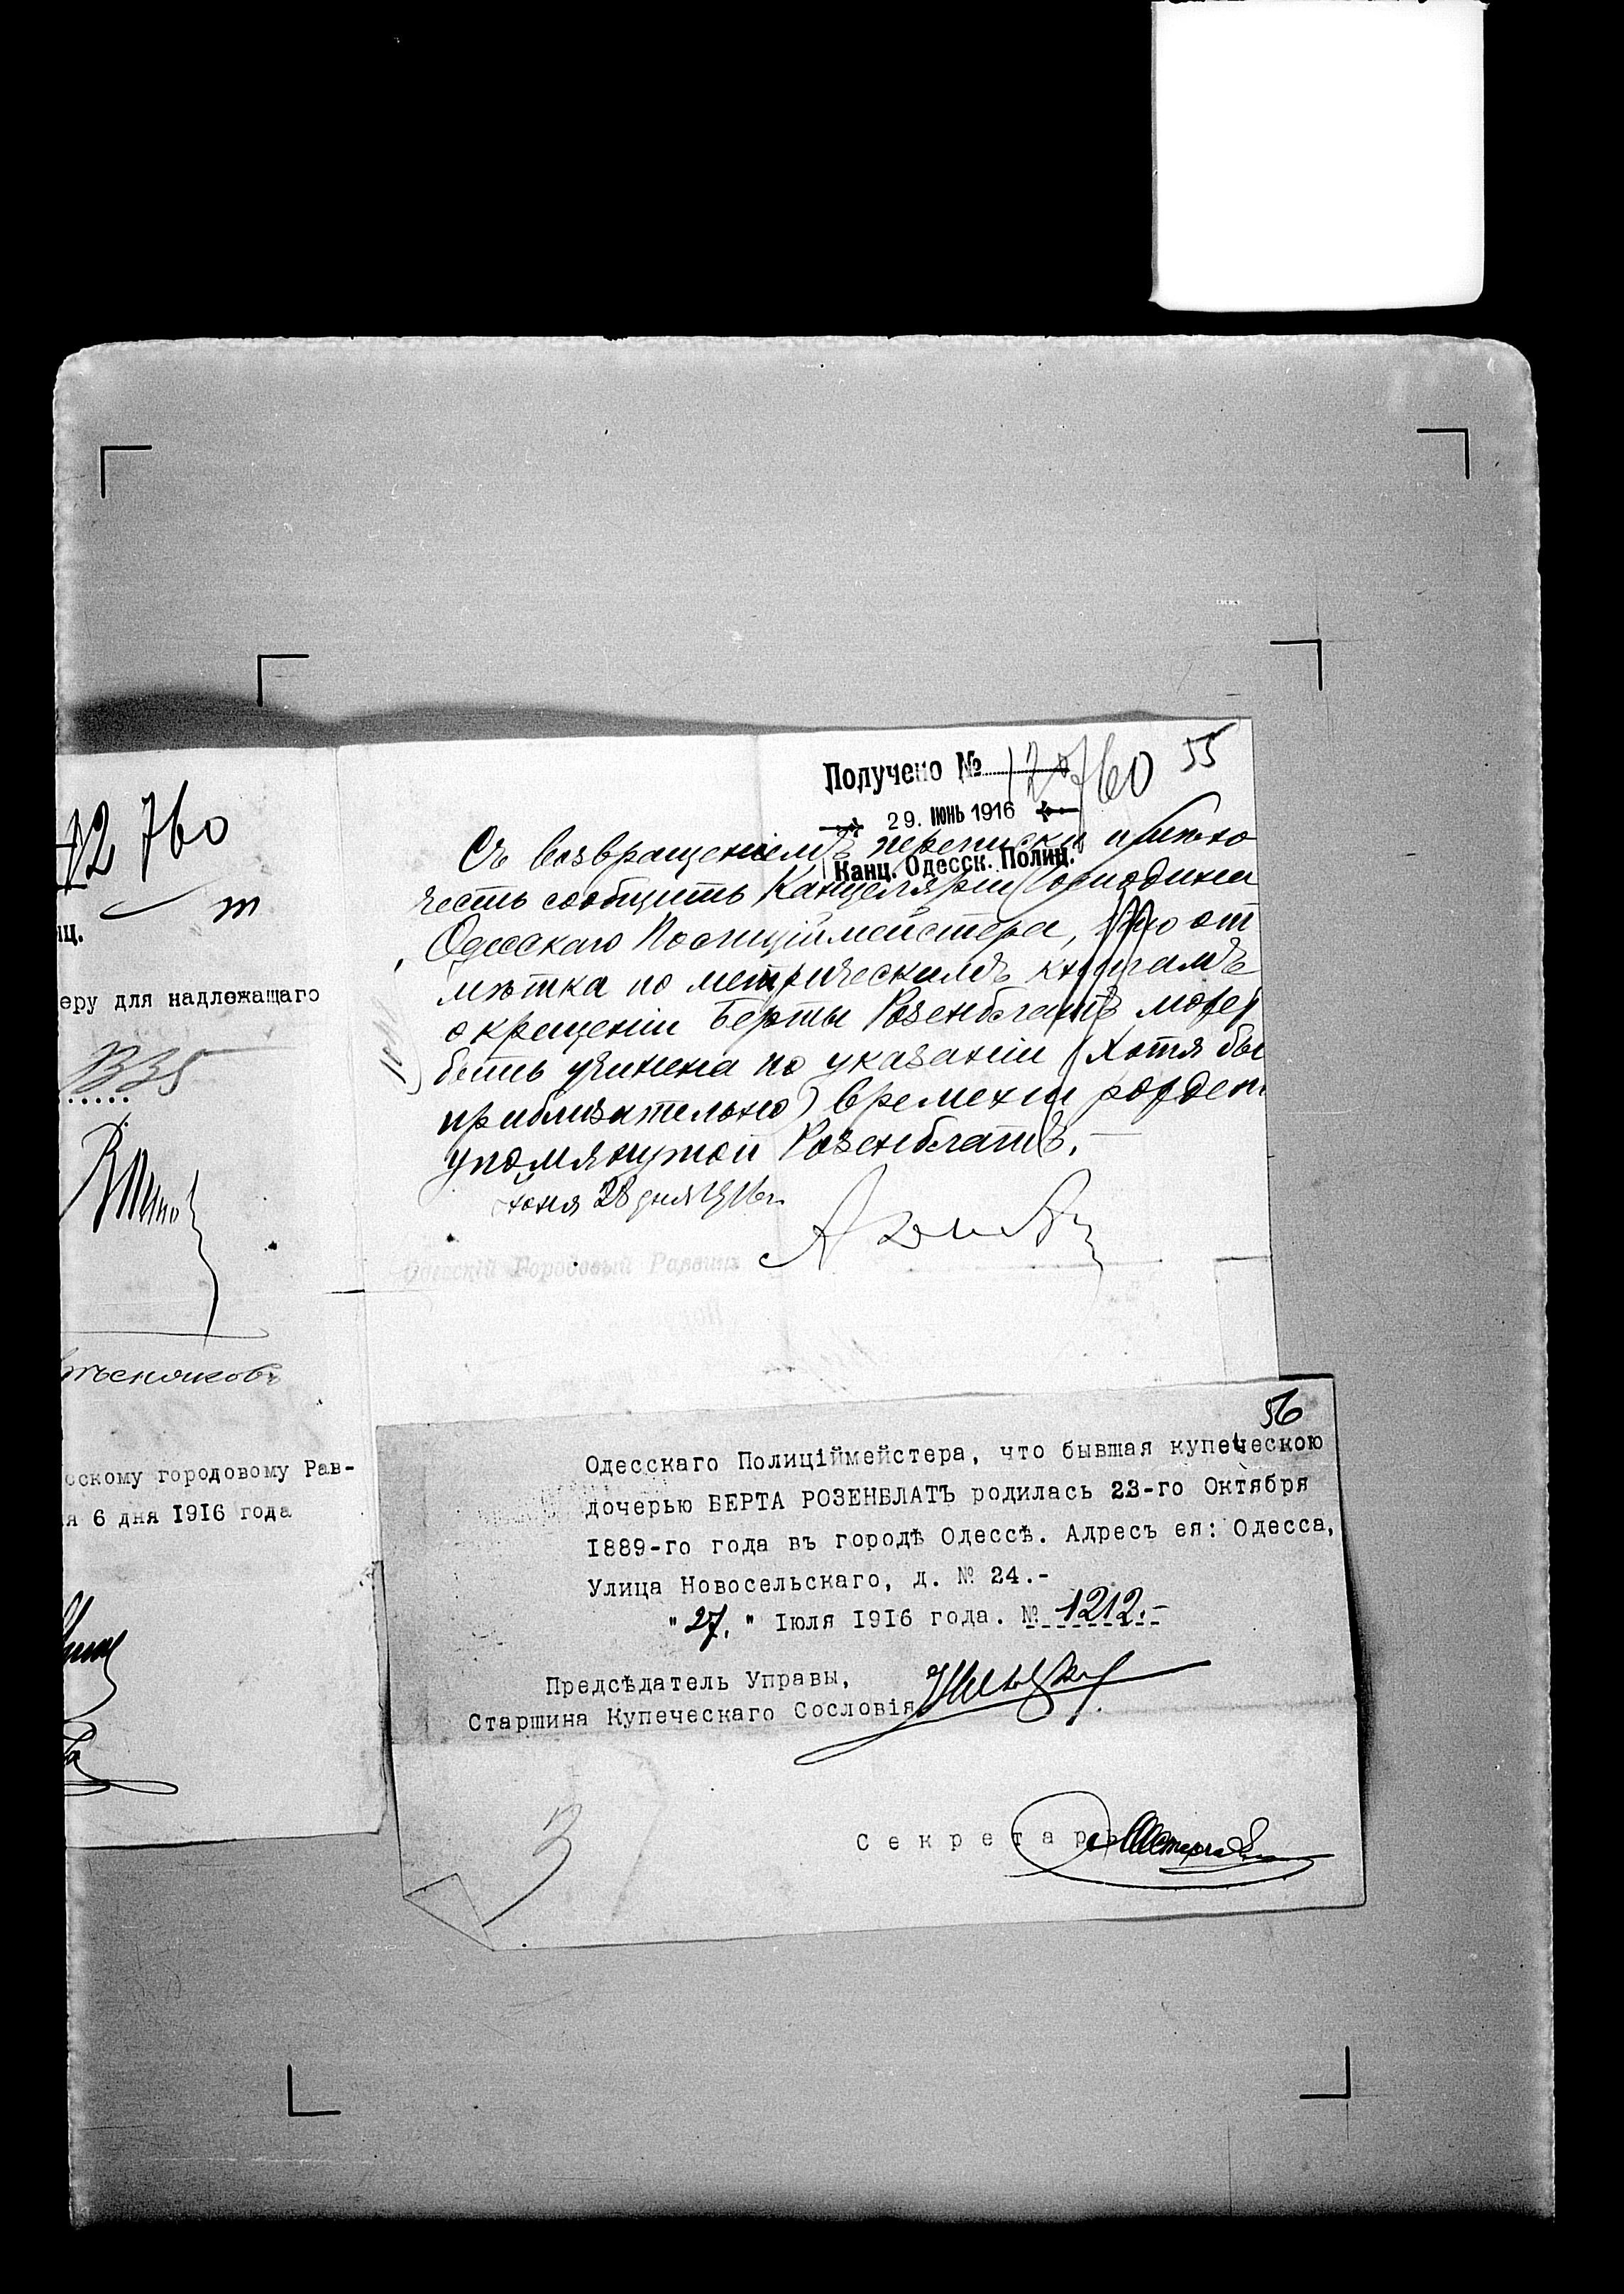 12 760
т
нц.
еру для надлежащаго
335
скому городовому Рав-
я 6 дня 1916 года
55
Получено № 12760
29. ІЮНЬ 1916
Канц. Одесск. Полиц.
Съ возвращеніемъ переписки имѣю
честь сообщить Канцеляріи Господина
Одесскаго Полиціймейстера, что от
мѣтка по метрическимъ книгамъ
о крещеніи Берты Розенблатъ может
быть учинена по указаніи (хотя бы
приблизительно) времени рожден
упомянутой Розенблатъ.—
Іюня 28 дня 1916 г.
Одесскій Городовый Раввинъ
56
Одесскаго Полиціймейстера, что бывшая купеческою
дочерью БЕРТА РОЗЕНБЛАТЪ родилась 23-го Октября
1889-го года въ городѣ Одессѣ. Адресъ ея: Одесса,
Улица Новосельскаго, д. № 24.-
"27." Іюля 1916 года. № 1212.-
Предсѣдатель Управы,
Старшина Купеческаго Сословія
Секретарь
3